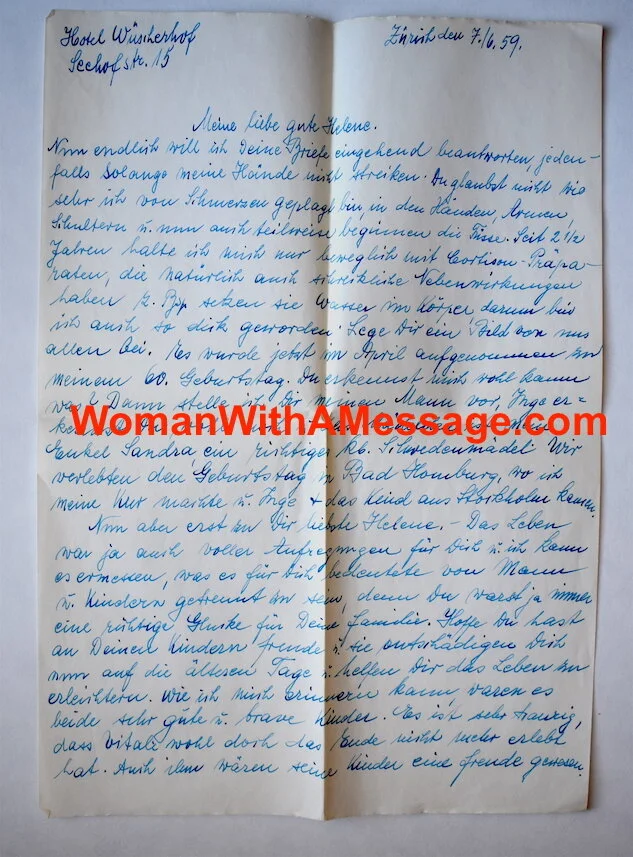 Hotel Wüscherhof
Seehofstr. 15
Zürich den 7./6. 59.
Meine liebe gute Helene.
Nun endlich will ich Deine Briefe eingehend beantworten, jeden-
falls solange meine Hände nicht streiken. Du glaubst nicht wie
sehr ich von Schmerzen geplagt bin, in den Händen, Armen,
Schultern u. nun auch teilweise beginnen die Füsse. Seit 2 1/2
Jahren halte ich mich nur beweglich mit Cortison-Präpa-
raten, die natürlich auch schreckliche Nebenwirkungen
haben z. Bsp. setzen sie Wasser im Körper darum bin
ich auch so dick geworden. Lege Dir ein Bild von uns
allen bei. Es wurde jetzt im April aufgenommen zu
meinem 60. Geburtstag. Du erkennst mich wohl kaum
was? Dann stelle ich Dir meinen Mann vor, Inge er-
WomanWithAMessage.com
Enkel Sandra, ein richtiges kl. Schwedenmädel. Wir
verlebten den Geburtstag in Bad Homburg, wo ich
meine Kur machte u. Inge + das Kind aus Stockholm kamen.
Nun aber erst zu Dir liebste Helene. - Das Leben
war ja auch voller Aufregungen für Dich u. ich kann
es ermessen, was es für Dich bedeutete von Mann
u. Kindern getrennt zu sein, denn Du warst ja immer
eine richtige Glucke für Deine Familie. Hoffe Du hast
an Deinen Kindern Freude u. sie entschädigen Dich
nun auf die älteren Tage u. helfen Dir das Leben zu
erleichtern. Wie ich mich erinnern kann, waren es
beide sehr gute u. brave Kinder. Es ist sehr traurig,
dass Vitali wohl doch das Ende nicht mehr erlebt
hat. Auch ihm wären seine Kinder eine Freude gewesen.